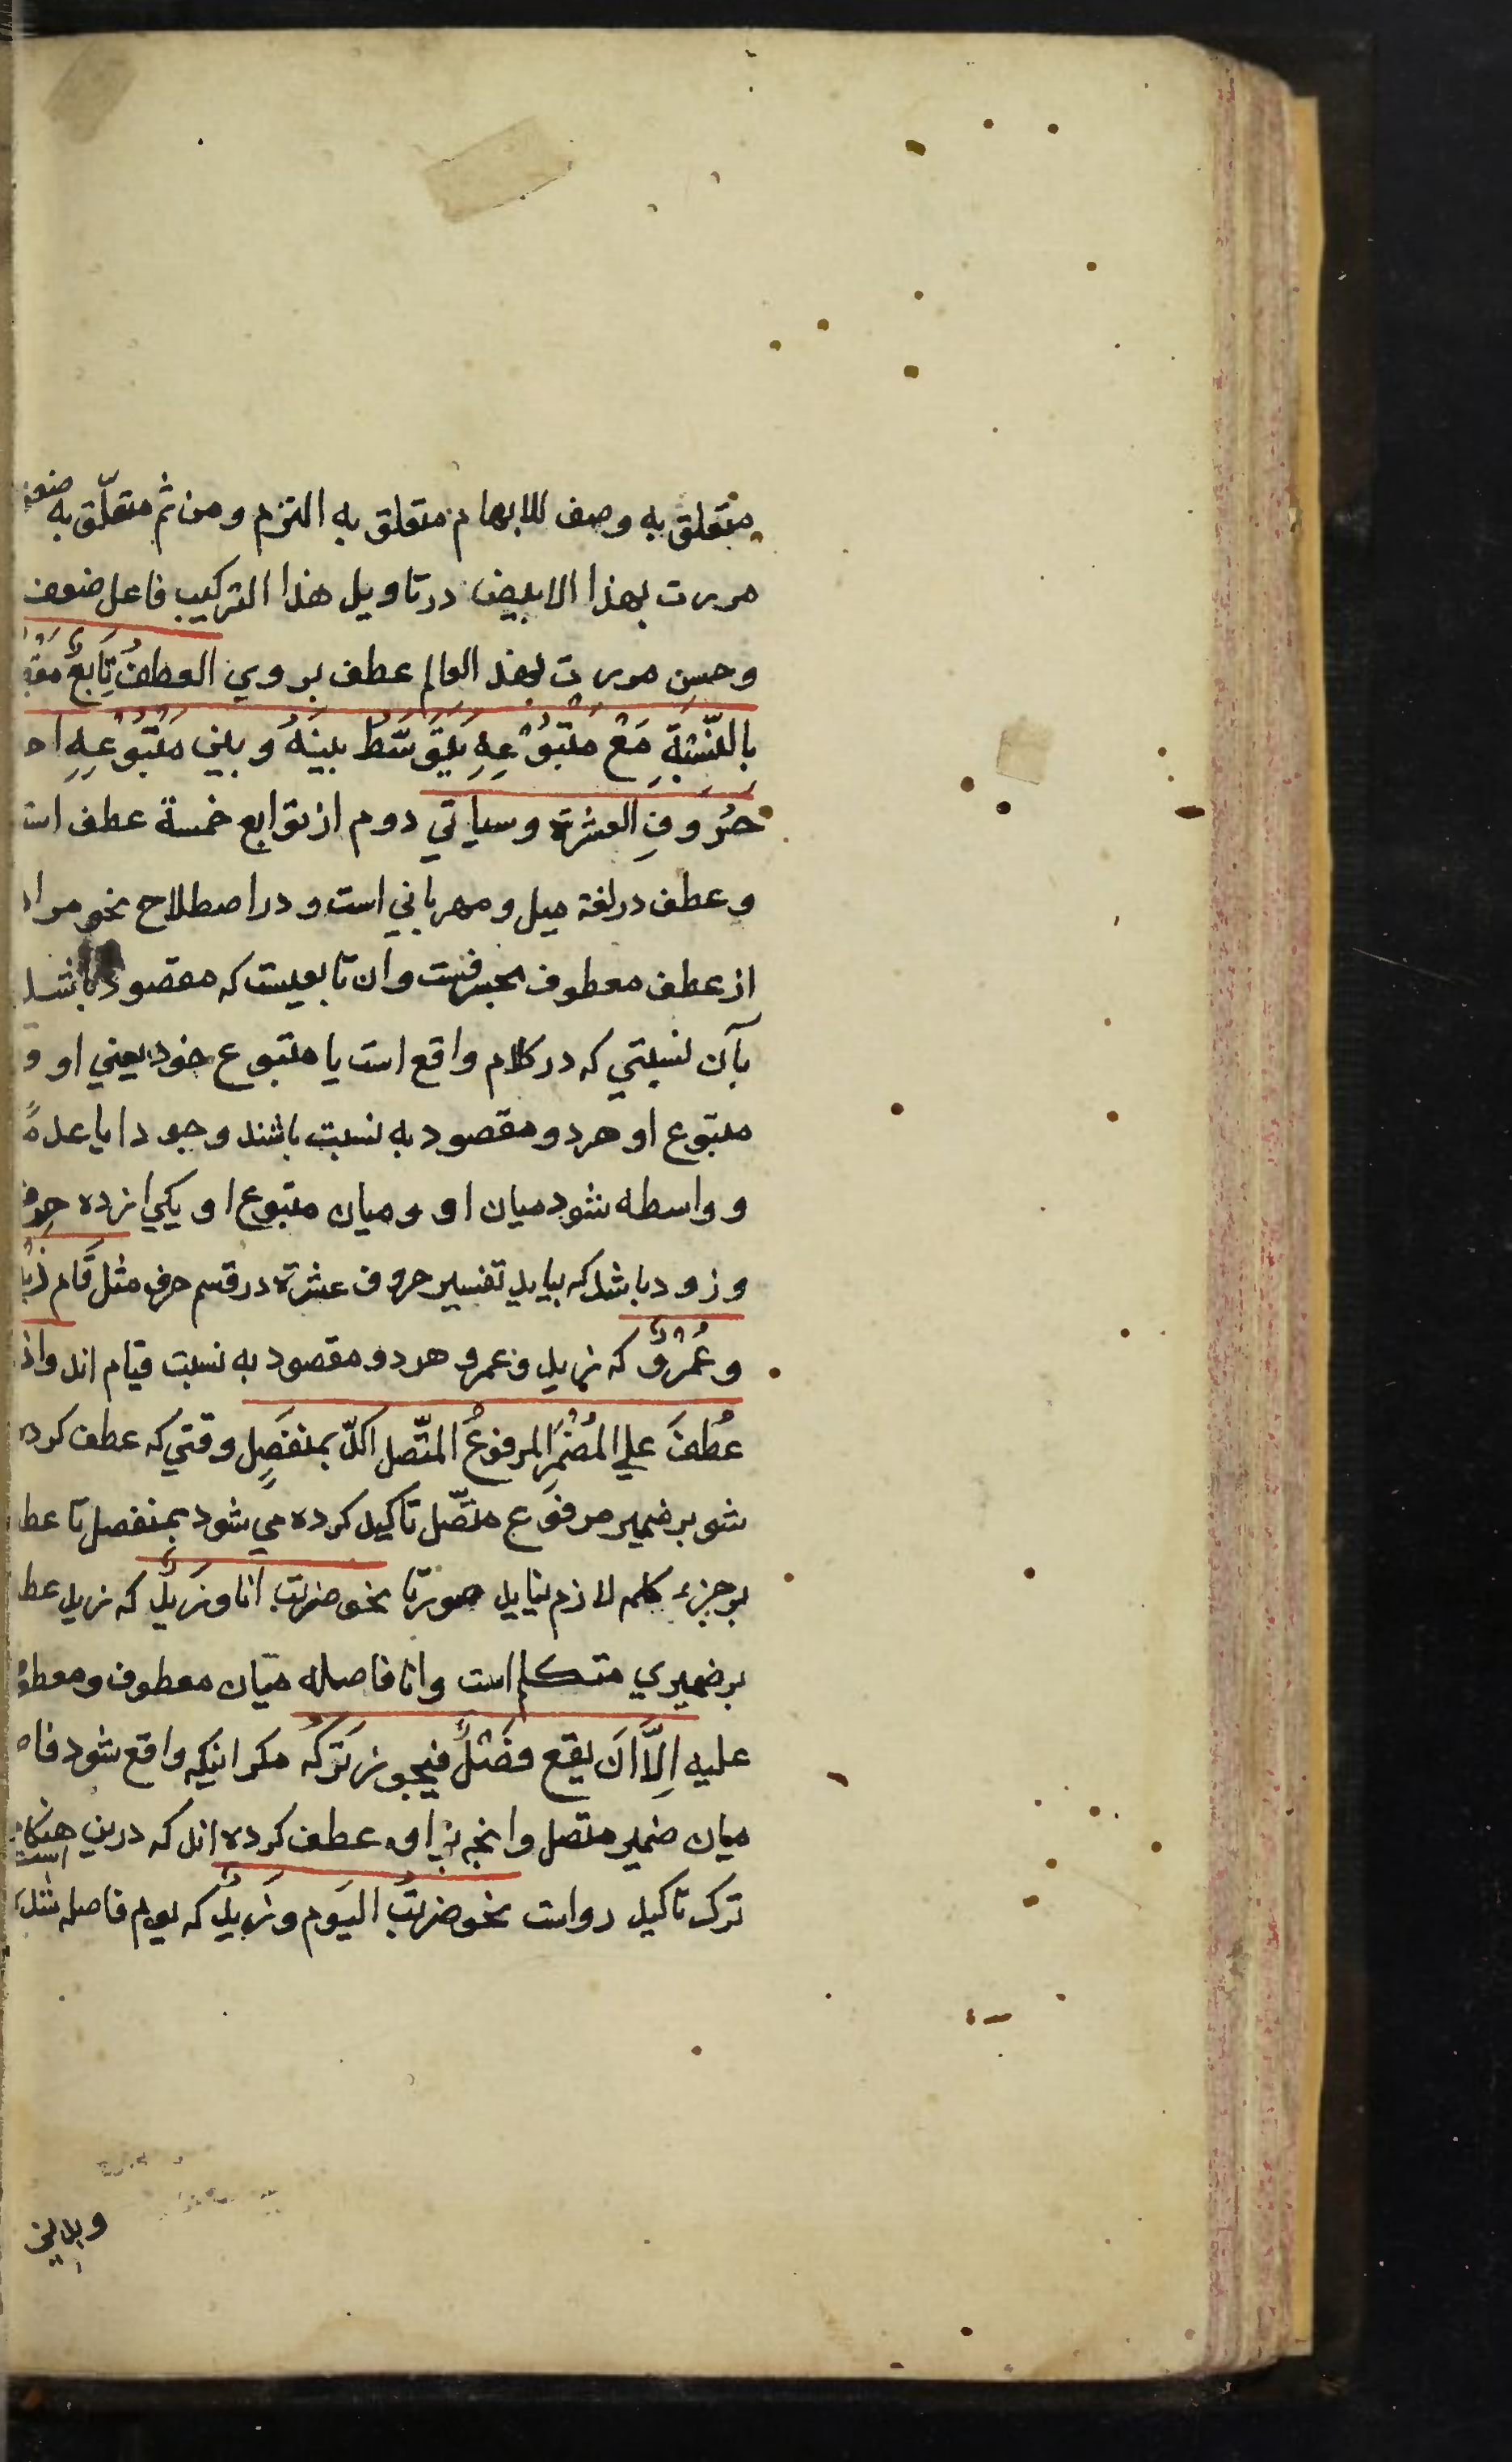 متعلق به وصف للابهام متعلق به التزم ومن ثم متعلّق به ضعف
مررت بهذا الابيض درتاويل هذا التركيب فاعل ضعف
وحسن مررت بهذا العالم عطف بروي العطفُ تَابِعٌ
بِالنِّسْبَةِ مَعْ مَتْبُوْعِهِ يَتَوَسَّطُ بينَهُ وبين مَتْبُوْعِهِ
حُرُوفِ العشرة وسياتي دوم ازتوابع خمسة عطف است
وعطف درلغة ميل ومهرباني است ودر اصطلاح نحو مراد
ازعطف معطوف بحرفست وآن تابعيست كه مقصود باشد
بآن نسبتي كه دركلام واقع است با متبوع خود يعني او و
متبوع او هردو مقصود به نسبت باشند وجودا يا عدمًا
وواسطه شود ميان او وميان متبوع او يكي ازده حرف
وزود باشد كه بيايد تفسير حروف عشرة درقسم حرف مثل قَام زيد
وعَمْرٌو كه زيد وعمرو هردو مقصود به نسبت قيام اند واذا
عُطفَ علي المُضْمَرِ المرفوعُ المتّصل اكّد بمنفصِلٍ وقتي كه عطف كرده
شو برضمير مرفوع متصّل تاكيد كرده مي شود بمنفصل تا عطف
برجزء كلمه لازم نيايد صورتا نحو ضربت انا وزَيدٌ كه زيد عطف
برضميري متكلم است وانا فاصله ميان معطوف ومعطوف
عليه اِلَّا اَن يقع فَصْلٌ فيجوز تَركُهُ مكر انيكه واقع شود فاصله
ميان ضمير متصل وانچه براو عطف كرده اند كه درين هنكام
ترك تاكيد رواست نحو ضربتُ اليَوم وزَيدٌ كه يوم فاصله شد
وبدين